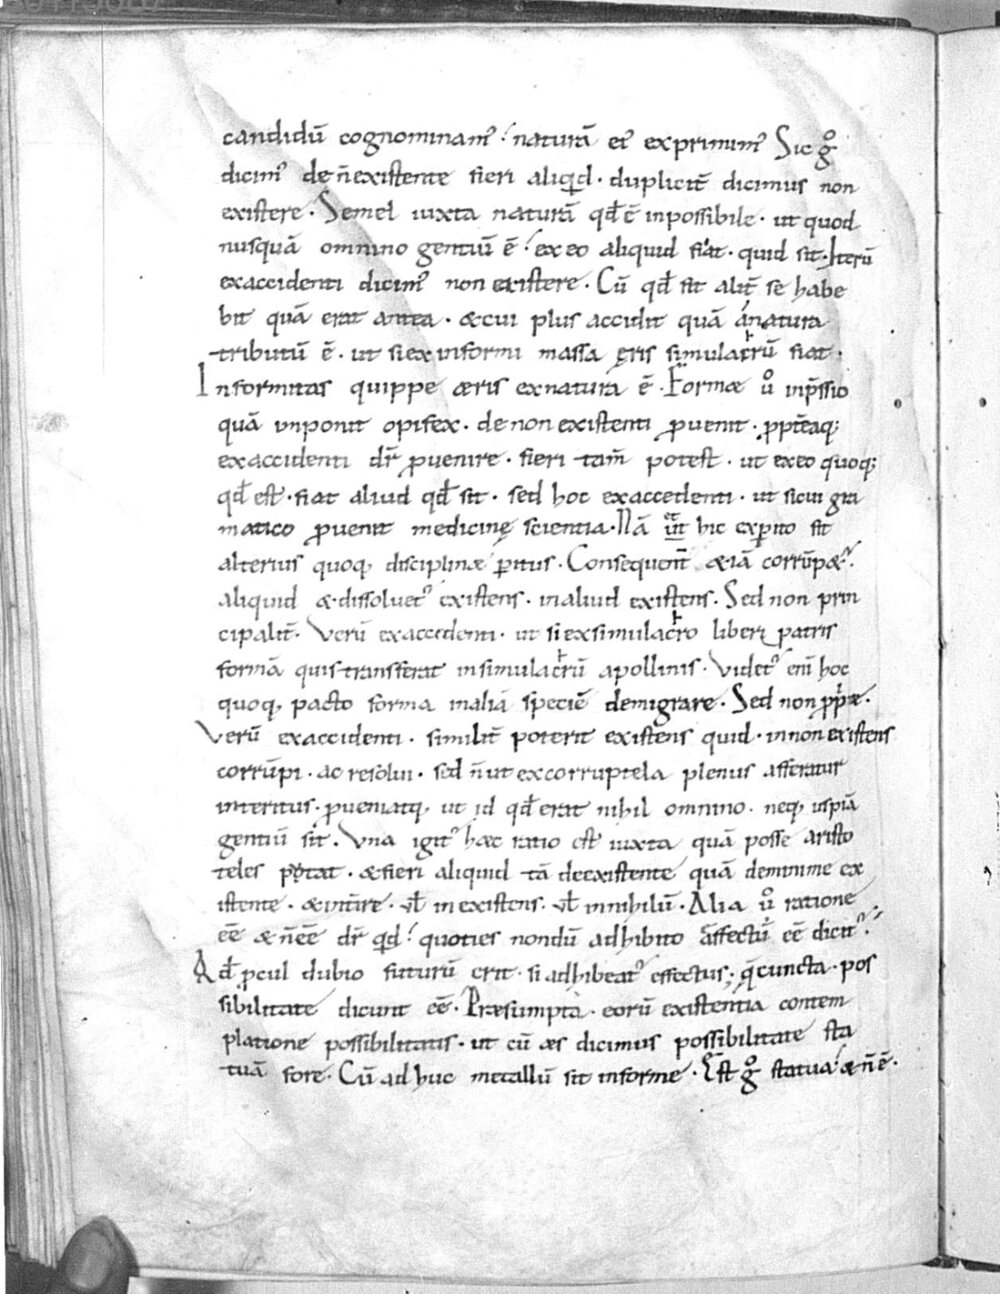 candidū cognominam᷒ ⸵ naturā ei᷒ exprimim᷒ Sic gͦ
dicim᷒ de n̄ existente fieri aliqd̄ · duplicit̄ dicimus non
existere · Semel iuxta naturā qd̄ ē inpossibile · ut quod
nusquā omnino gentiū ē ⸵ ex eo aliquid fiat · quid sit · Iterū
exaccidenti dicim᷒ non existere · Cū qd̄ sit alit̄ se habe
bit quā erat antea · &cui plus accidit quā ánatura
tributū ē · ut siex informi massa ęris simulacrū fiat ·
Informitas quippe æris exnatura ē · Formæ uͦ inp̄ssio
quā inponit opifex · de non existenti ꝓuenit · ꝓpt̄eaq;
exaccidenti dr̄ ꝓuenire · fieri tam̄ potest · ut exeo quoq;
qd̄ est · fiat aliud qd̄ sit · sed hoc exaccedenti · ut sicui gra
matico ꝓuenit medicinę scientia · Nā ut hic exꝑito sit
alterius quoq, disciplinæ ꝑitus · Consequent̄ &iā corrūpæ᷒ ·
aliquid &dissoluet᷒ existens · inaliud existens · Sed non prin
cipalit̄ · Verū exaccedenti · ut siexsimulacro liberi patris
formā quis transferat insimulacrū apollinis · Videt᷒ eni̅ hoc
quoq, pacto forma inaliā speciē demigrare · Sed non ꝓpᵉæ ·
Verū exaccidenti · similit̄ poterit existens quid · innon existens
corrūpi · ac resolui · sed n̄ ut excorruptela plenus afferatur
interitus · ꝓueniatq, ut id qd̄ erat nihil omnino · neq, uspiā
gentiū sit · Vna igit᷒ hæc ratio est iuxta quā posse aristo
teles putat · &fieri aliquid tā deexistente quā deminime ex
istente · &int̄ire · ut̄ inexistens · ut̄ innihilū · Alia uͦ ratione
ēē & n̄ēē dr̄ qd̄ ⸵ quoties nondū adhibito affectui ēē dicit᷒ ·
Ad̄ ꝓcul dubio futurū erit · si adhibeat᷒ effectus ; q̄cuncta · pos
sibilitate dicunt ēē · Præsumpta · eorū existentia contem
platione possibilitatis · ut cū æs dicimus possibilitate sta
tuā fore · Cū ad huc metallū sit informe · Est gͦ statua ⸵ & n̄ ē ·